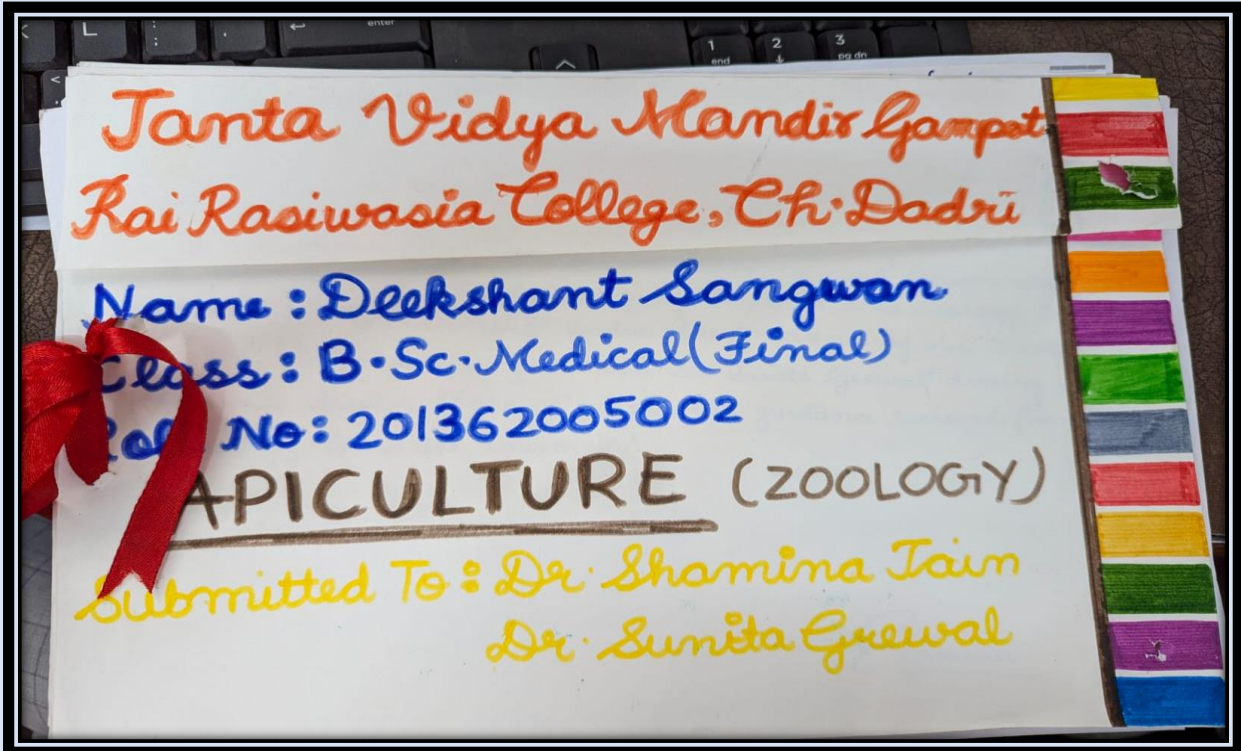 enter
1 2 3
end ↓ pg dn
Janta Vidya Mandir Ganpat
Rai Rasiwasia College, Ch. Dadri
Name : Deekshant Sangwan
Class : B.Sc. Medical (Final)
Roll No: 201362005002
APICULTURE (ZOOLOGY)
Submitted To : Dr. Shamina Jain
Dr. Sunita Grewal